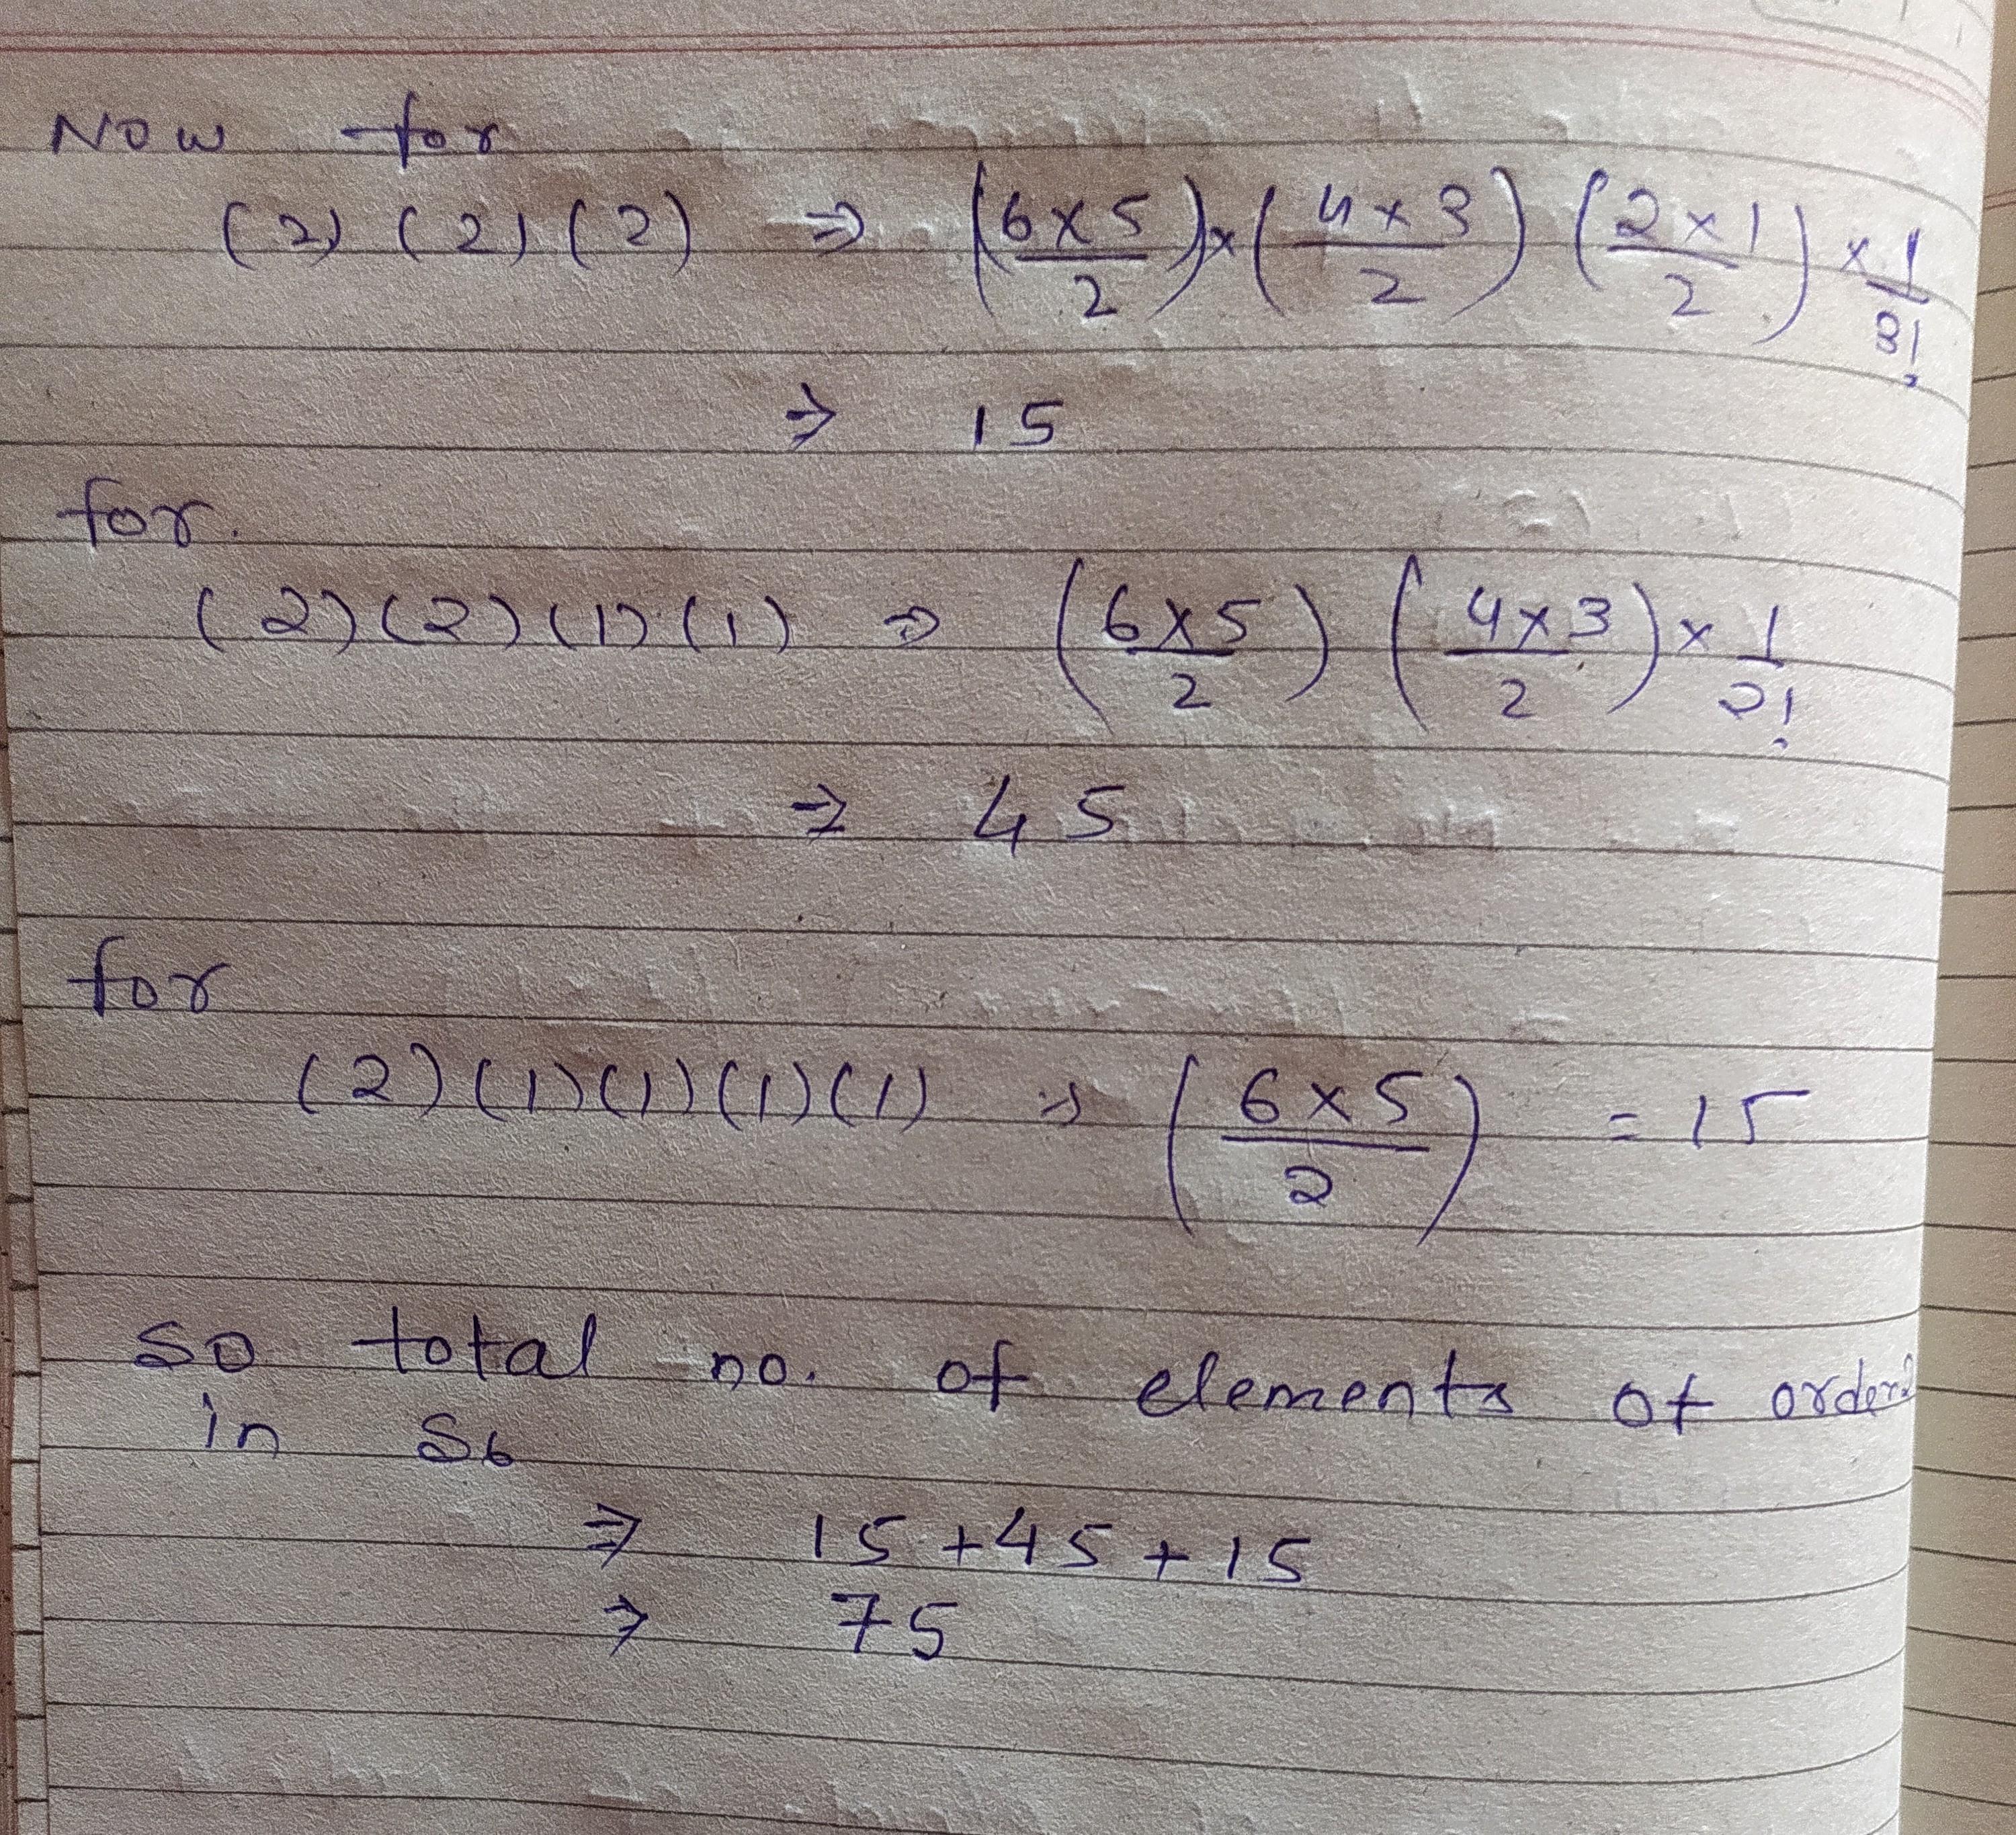 Now for
(2) (2) (2) ⇒ (6×5/2)×(4×3/2) (2×1/2) × 1/3!
⇒ 15
for.
(2)(2)(1)(1) ⇒ (6×5/2) (4×3/2) × 1/2!
⇒ 45
for
(2)(1)(1)(1)(1) ⇒ (6×5/2) = 15
so total no. of elements of order 2
in S6
⇒ 15+45+15
⇒ 75